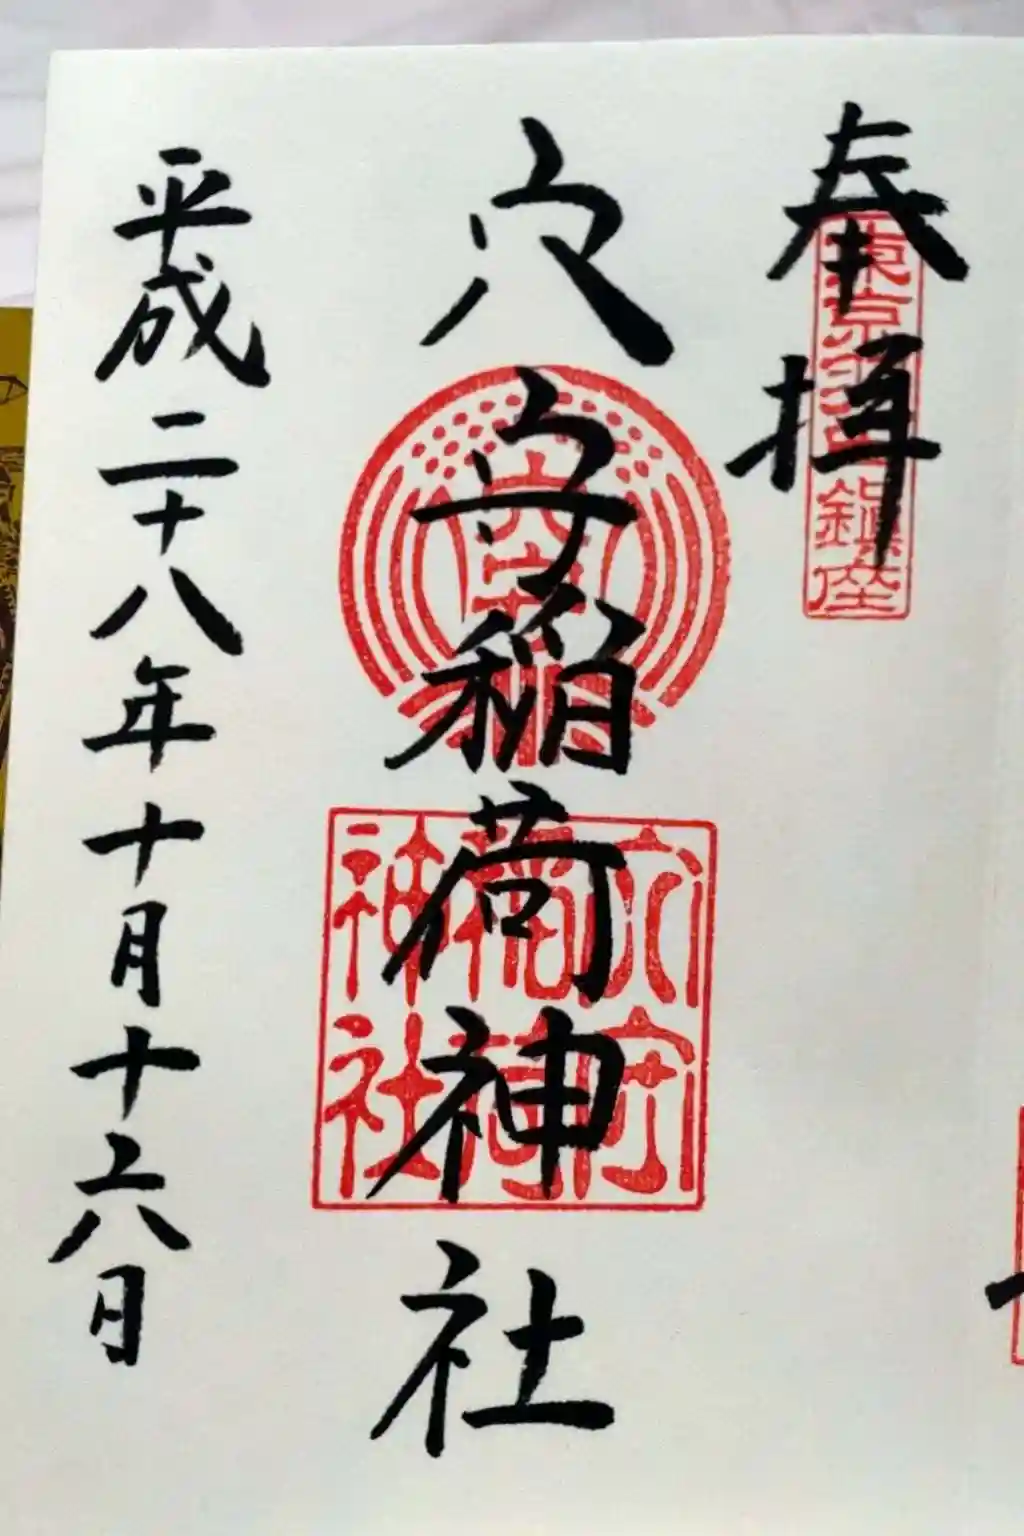 奉拝
東京羽田鎭座
穴守稲荷神社
穴守
穴守
稲荷
神社
平成二十八年十月十六日